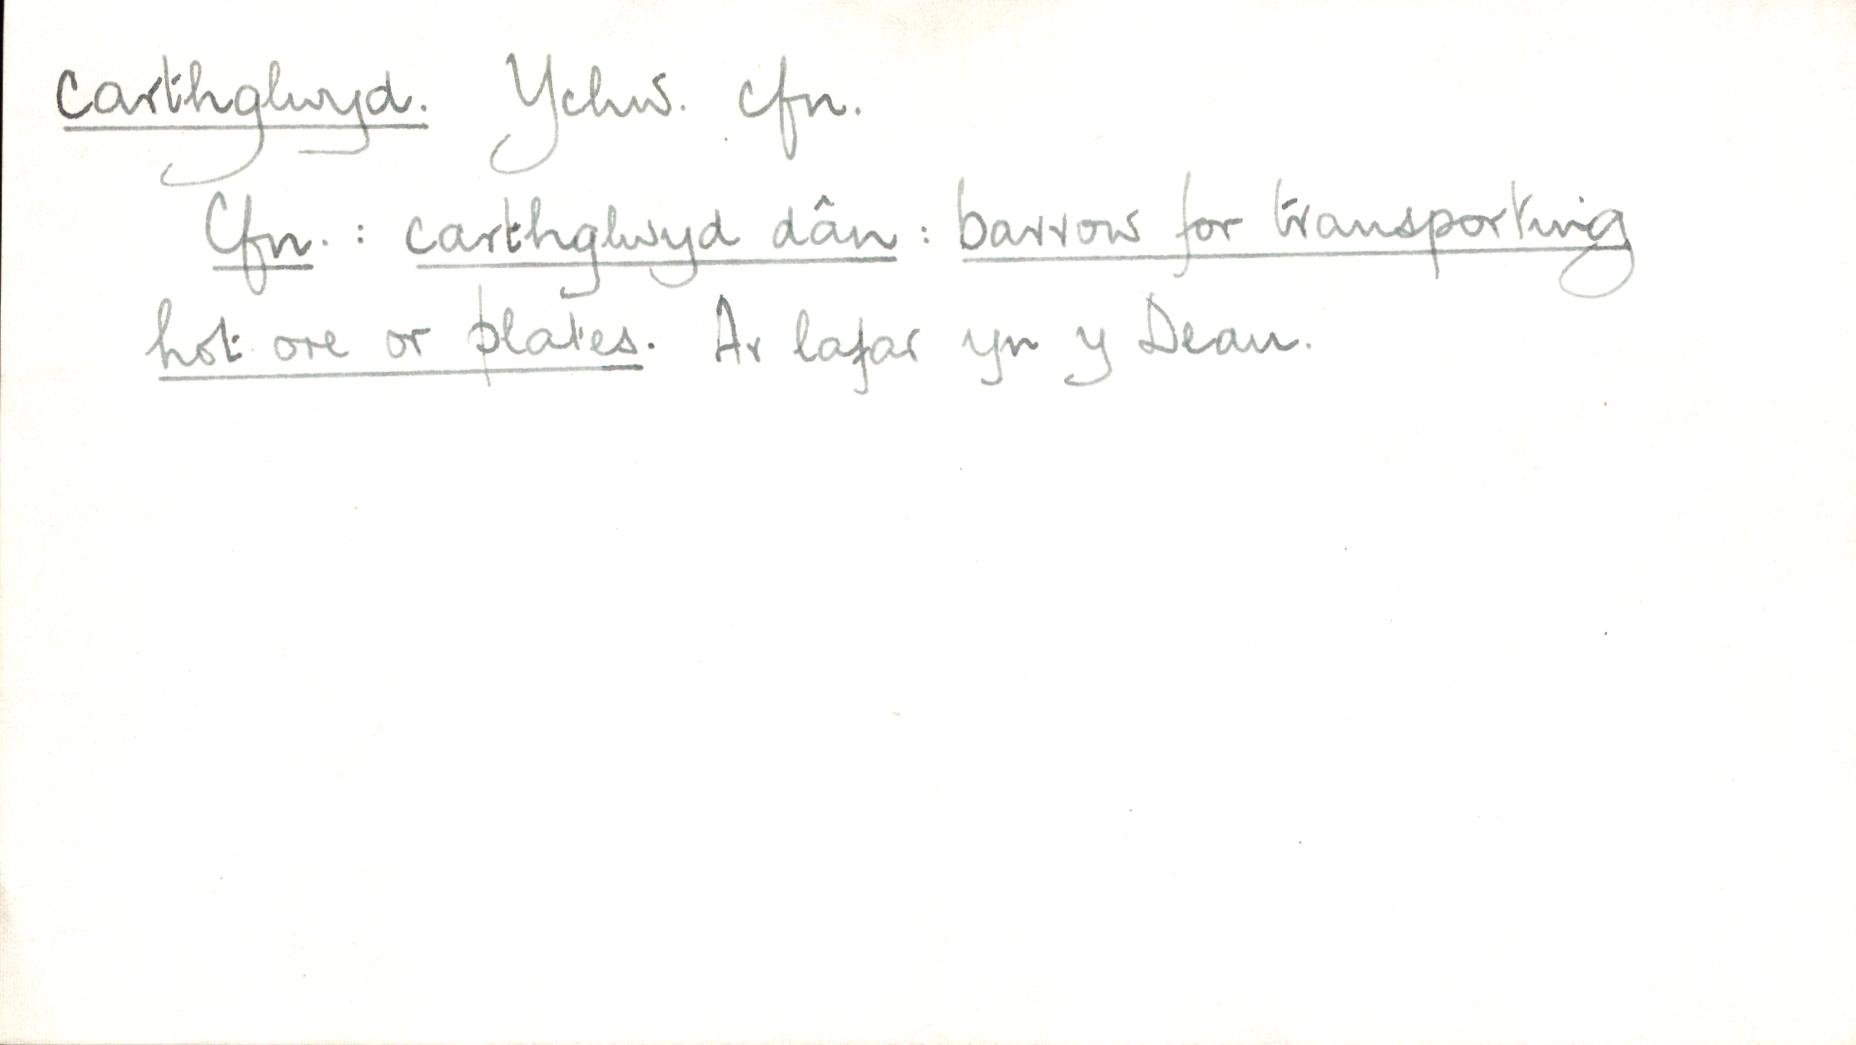 carthglwyd. Ychw. cfn.
Cfn. : carthglwyd dân : barrow for transporting
hot ore or plates. Ar lafar yn y Deau.